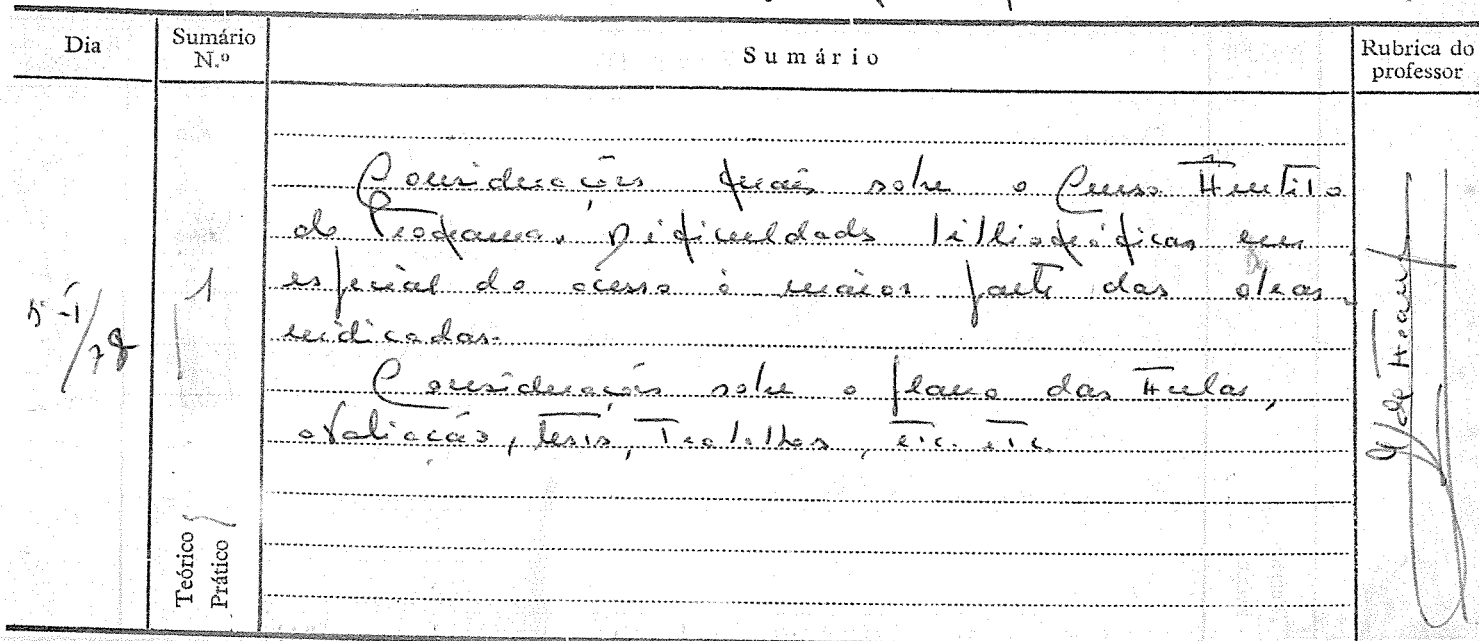 Dia
Sumário N.º
Sumário
Rubrica do professor
Considerações gerais sobre o Curso
do Programa. Dificuldades bibliográficas em
especial do acesso à maior parte das obras
indicadas.
Considerações sobre o plano das Aulas,
avaliação, testes, Trabalhos, etc. etc.
1
/78
Teórico
Prático